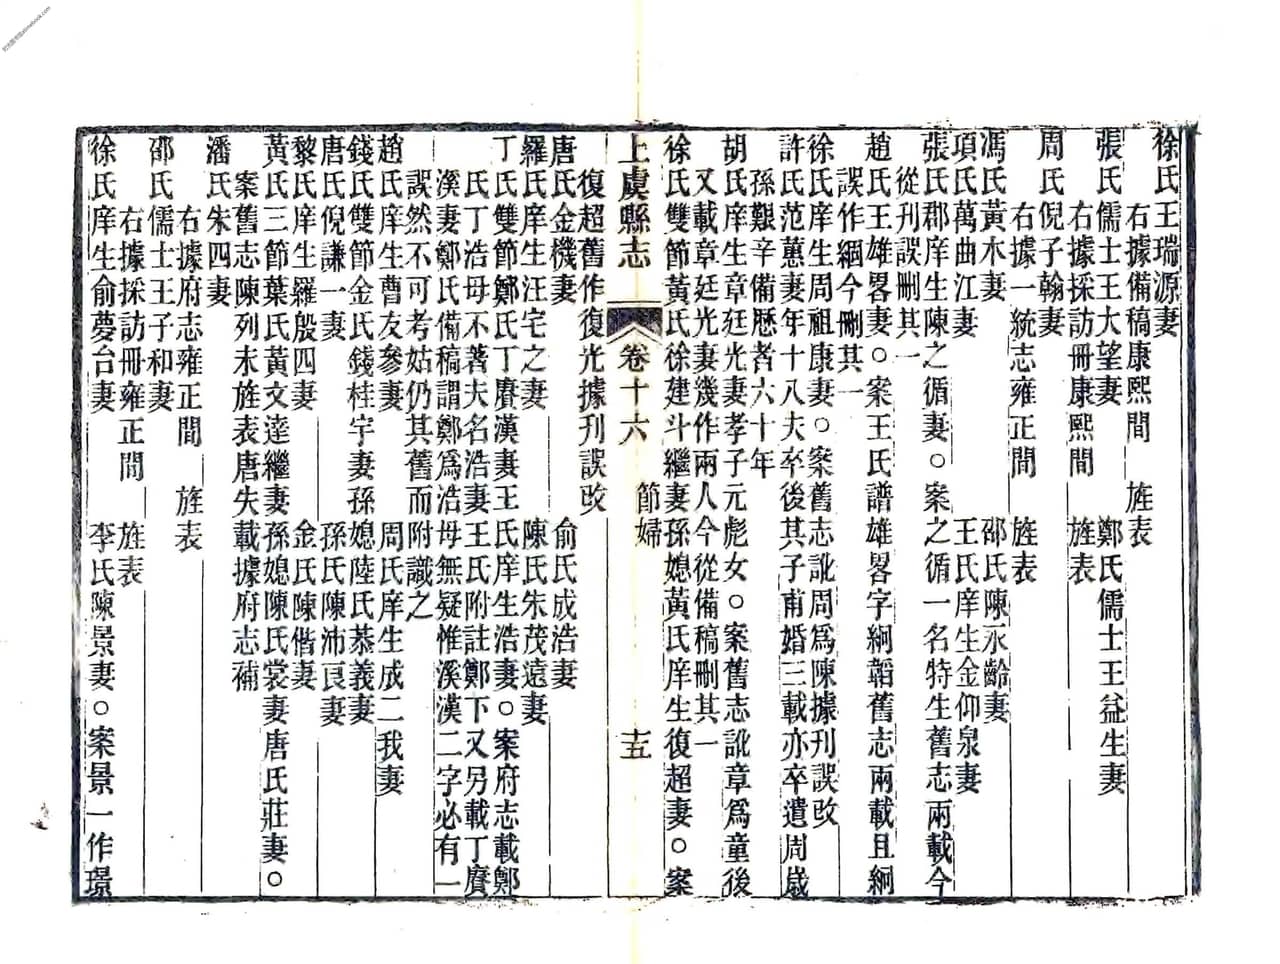 徐氏王瑞源妻
右據備稿康熙間　旌表
張氏儒士王大望妻　鄭氏儒士王益生妻
右據採訪冊康熙間　旌表
周氏倪子翰妻
右據一統志雍正間　旌表
馮氏黃木妻　邵氏陳永齡妻
項氏萬曲江妻　王氏庠生金仰泉妻
張氏郡庠生陳之循妻○案之循一名特生舊志兩載今
從刊誤刪其一
趙氏王雄畧妻○案王氏譜雄畧字絅韜舊志兩載且絅
誤作綱今刪其一
徐氏庠生周祖康妻○案舊志訛周爲陳據刊誤改
許氏范蕙妻年十八夫卒後其子甫婚三載亦卒遺周歲
孫艱辛備歷者六十年
胡氏庠生章廷光妻孝子元彪女○案舊志訛章爲童後
又載章廷光妻幾作兩人今從備稿刪其一
徐氏雙節黃氏徐建斗繼妻孫媳黃氏庠生復超妻○案
上虞縣志　卷十六　節婦　十五
復超舊作復光據刊誤改
唐氏金機妻　俞氏成浩妻
羅氏庠生汪宅之妻　陳氏朱茂遠妻
丁氏雙節鄭氏丁賡漢妻王氏庠生浩妻○案府志載鄭
氏丁浩母不著夫名浩妻王氏附註鄭下又另載丁賡
溪妻鄭氏備稿謂鄭爲浩母無疑惟溪漢二字必有一
誤然不可考姑仍其舊而附識之
趙氏庠生曹友參妻　周氏庠生成二我妻
錢氏雙節金氏錢桂宇妻孫媳陸氏慕義妻
唐氏倪謙一妻　孫氏陳沛良妻
黎氏庠生羅殷四妻　金氏陳偕妻
黃氏三節葉氏黃文逹繼妻孫媳陳氏裳妻唐氏莊妻○
案舊志陳列未旌表唐失載據府志補
潘氏朱四妻
右據府志雍正間　旌表
邵氏儒士王子和妻
右據採訪冊雍正間　旌表
徐氏庠生俞夢台妻　李氏陳景妻○案景一作璟